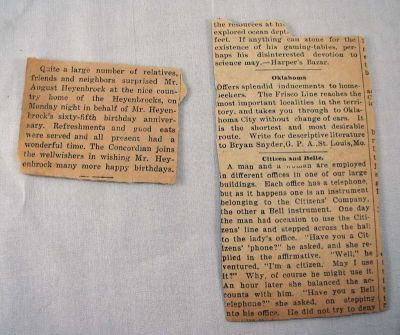 Quite a large number of relatives,
friends and neighbors surprised Mr.
August Heyenbrock at the nice coun-
try home of the Heyenbrocks, on
Monday night in behalf of Mr. Heyen-
brock's sixty-fifth birthday anniver-
sary. Refreshments and good eats
were served and all present had a
wonderful time. The Concordian joins
the wellwishers in wishing Mr. Hey-
enbrock many more happy birthdays.
the resources at his
explored ocean dept
feet. If anything can atone for the
existence of his gaming-tables, per-
haps his disinterested devotion to
science may.—Harper's Bazar.
Oklahoma
Offers splendid inducements to home-
seekers. The Frisco Line reaches the
most important localities in the terri-
tory, and takes you through to Okla-
homa City without change of cars. It
is the shortest and most desirable
route. Write for descriptive literature
to Bryan Snyder, G. P. A., St. Louis, Mo.
Citizen and Belle.
A man and a woman are employed
in different offices in one of our large
buildings. Each office has a telephone,
but as it happens one is an instrument
belonging to the Citizens' Company,
the other a Bell instrument. One day
the man had occasion to use the Citi-
zens' line and stepped across the hall
to the lady's office. "Have you a Cit-
izens' 'phone?" he asked, and she re-
plied in the affirmative. "Well," he
ventured, "I'm a citizen. May I use
it?" Why, of course he might use it.
An hour later she balanced the ac-
counts with him. "Have you a Bell
telephone?" she asked, on stepping
into his office. He did not try to deny